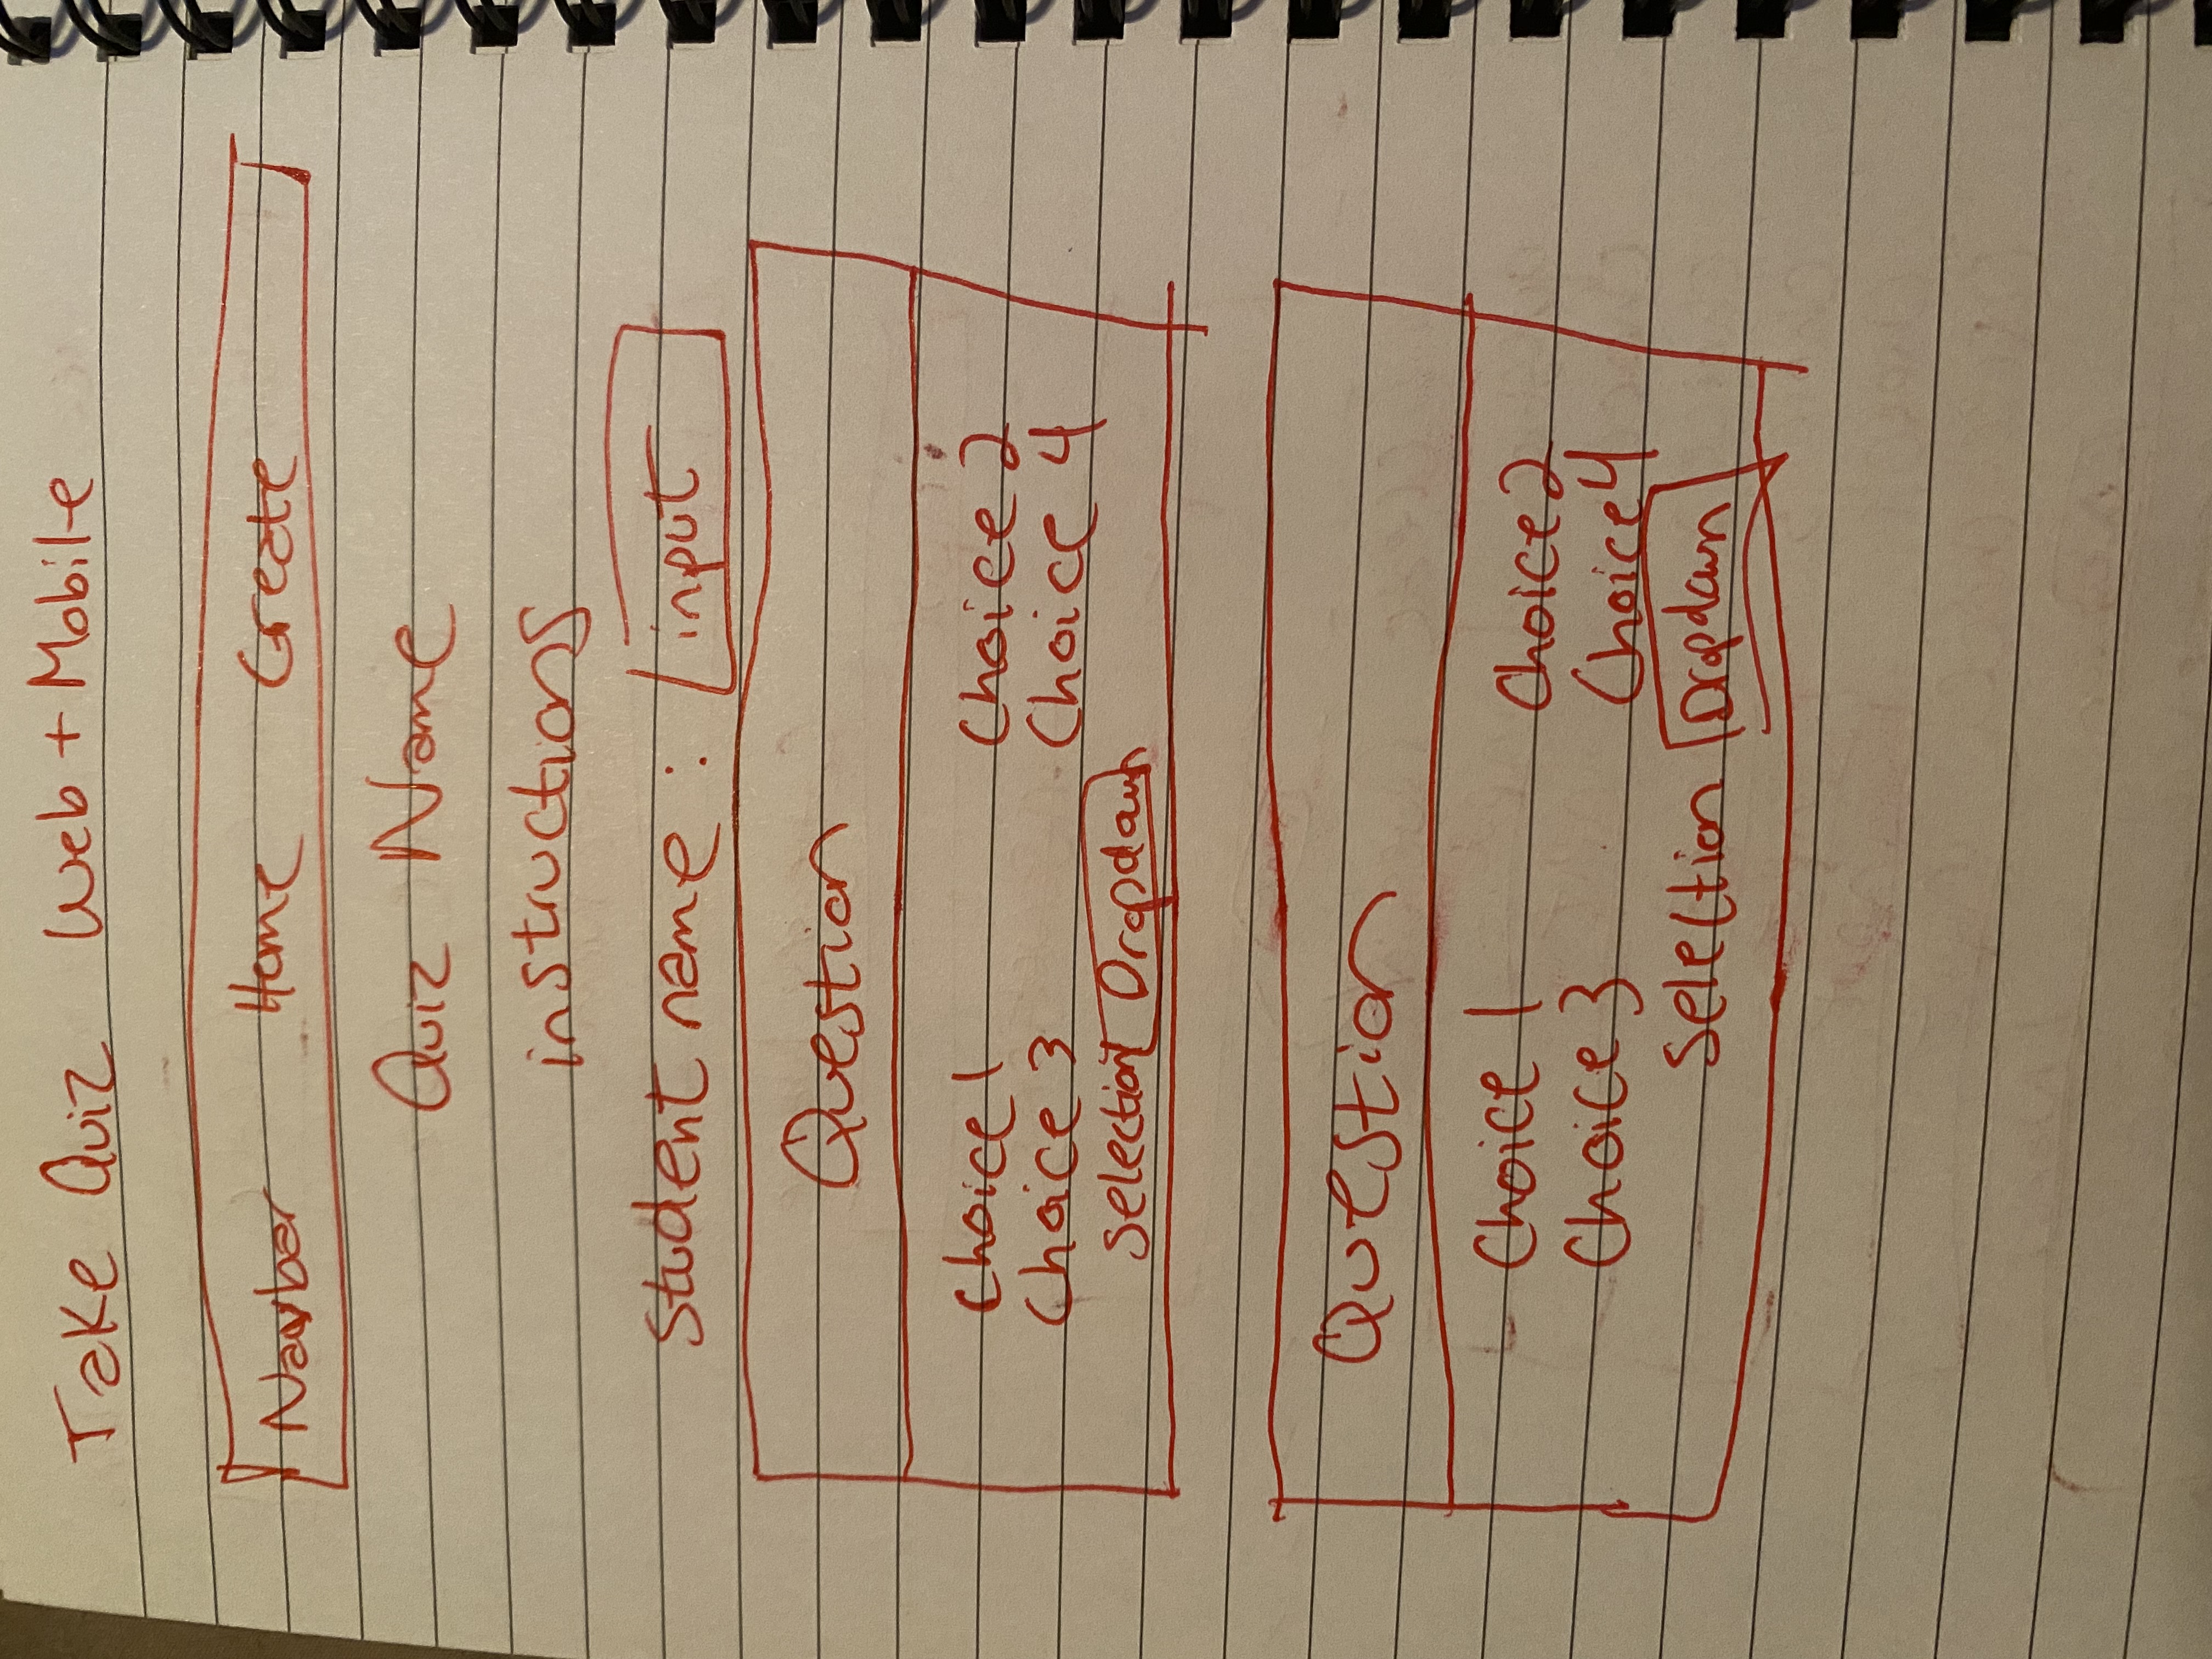 Take Quiz Web + Mobile
Navbar Home Create
Quiz Name
instructions
Student name : input
Question
Choice 1 Choice 2
Choice 3 Choice 4
Selection Dropdown
Question
Choice 1 Choice 2
Choice 3 Choice 4
Selection Dropdown